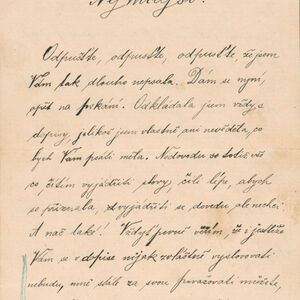 Odpusťte, odpusťte, odpusťte, že jsem
Vám tak dlouho nepsala. Dám se nyní
opět na pokání. Odkládala jsem vždy s
dopisy, jelikož jsem vlastně ani nevěděla, co
bych Vám psáti měla. Nedovedu se totiž
co cítím vyjádřiti slovy, čili lépe, abych
se přiznala, vyjádřiti se dovedu, ale nechci.
A nač také! Vždyť pevně věřím, že i jestliže
Vám se v dopise nijak zvláštně vyslovovati
nebudu, mně stále za svou považovati můžete,